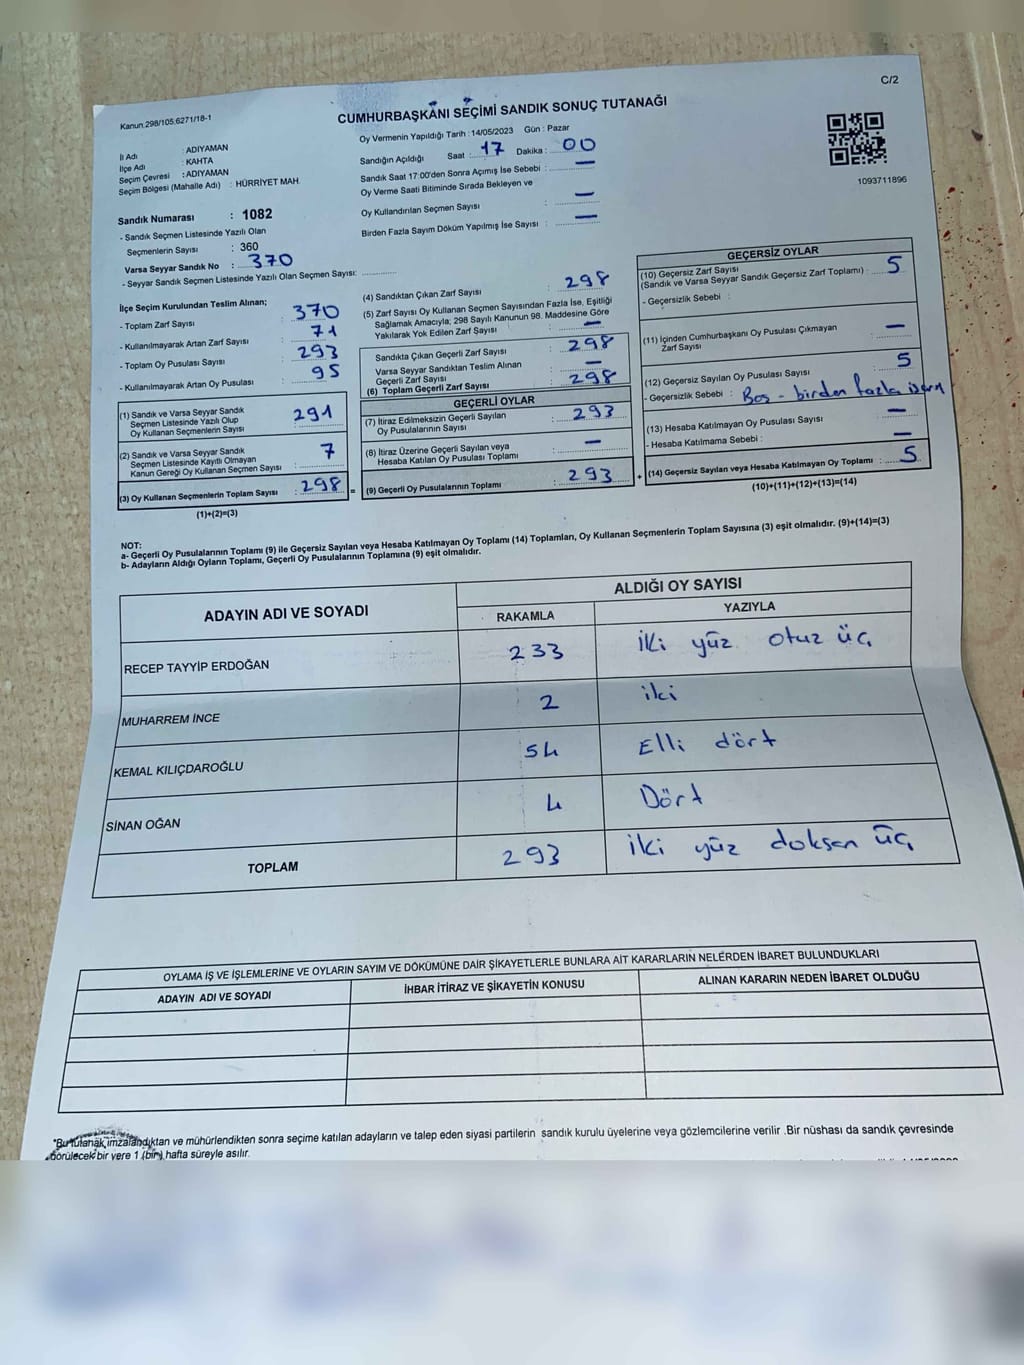 C/2
Kanun:298/105;6271/18-1
CUMHURBAŞKANI SEÇİMİ SANDIK SONUÇ TUTANAĞI
İl Adı : ADIYAMAN
İlçe Adı : KAHTA
Seçim Çevresi : ADIYAMAN
Seçim Bölgesi (Mahalle Adı) : HÜRRİYET MAH.
Sandık Numarası : 1082
- Sandık Seçmen Listesinde Yazılı Olan
Seçmenlerin Sayısı : 360
Varsa Seyyar Sandık No : 370
- Seyyar Sandık Seçmen Listesinde Yazılı Olan Seçmen Sayısı: ............
Oy Vermenin Yapıldığı Tarih : 14/05/2023 Gün : Pazar
Sandığın Açıldığı Saat : 17 Dakika : 00
Sandık Saat 17:00'den Sonra Açımış İse Sebebi : —
Oy Verme Saati Bitiminde Sırada Bekleyen ve
Oy Kullandırılan Seçmen Sayısı : —
Birden Fazla Sayım Döküm Yapılmış İse Sayısı : —
1093711896
İlçe Seçim Kurulundan Teslim Alınan;
- Toplam Zarf Sayısı : 370
- Kullanılmayarak Artan Zarf Sayısı : 71
- Toplam Oy Pusulası Sayısı : 293
- Kullanılmayarak Artan Oy Pusulası : 95
(1) Sandık ve Varsa Seyyar Sandık
Seçmen Listesinde Yazılı Olup
Oy Kullanan Seçmenlerin Sayısı : 291
(2) Sandık ve Varsa Seyyar Sandık
Seçmen Listesinde Kayıtlı Olmayan
Kanun Gereği Oy Kullanan Seçmen Sayısı : 7
(3) Oy Kullanan Seçmenlerin Toplam Sayısı : 298 =
(1)+(2)=(3)
(4) Sandıktan Çıkan Zarf Sayısı : 298
(5) Zarf Sayısı Oy Kullanan Seçmen Sayısından Fazla İse, Eşitliği
Sağlamak Amacıyla, 298 Sayılı Kanunun 98. Maddesine Göre
Yakılarak Yok Edilen Zarf Sayısı : —
Sandıkta Çıkan Geçerli Zarf Sayısı : 298
Varsa Seyyar Sandıktan Teslim Alınan
Geçerli Zarf Sayısı : —
(6) Toplam Geçerli Zarf Sayısı : 298
GEÇERLİ OYLAR
(7) İtiraz Edilmeksizin Geçerli Sayılan
Oy Pusulalarının Sayısı : 293
(8) İtiraz Üzerine Geçerli Sayılan veya
Hesaba Katılan Oy Pusulası Toplamı : —
(9) Geçerli Oy Pusulalarının Toplamı : 293 +
GEÇERSİZ OYLAR
(10) Geçersiz Zarf Sayısı
(Sandık ve Varsa Seyyar Sandık Geçersiz Zarf Toplamı) : 5
- Geçersizlik Sebebi :
(11) İçinden Cumhurbaşkanı Oy Pusulası Çıkmayan
Zarf Sayısı : —
(12) Geçersiz Sayılan Oy Pusulası Sayısı : 5
- Geçersizlik Sebebi : Boş - birden fazla
(13) Hesaba Katılmayan Oy Pusulası Sayısı : —
- Hesaba Katılmama Sebebi : —
(14) Geçersiz Sayılan veya Hesaba Katılmayan Oy Toplamı : 5
(10)+(11)+(12)+(13)=(14)
NOT:
a- Geçerli Oy Pusulalarının Toplamı (9) ile Geçersiz Sayılan veya Hesaba Katılmayan Oy Toplamı (14) Toplamları, Oy Kullanan Seçmenlerin Toplam Sayısına (3) eşit olmalıdır. (9)+(14)=(3)
b- Adayların Aldığı Oyların Toplamı, Geçerli Oy Pusulalarının Toplamına (9) eşit olmalıdır.
ADAYIN ADI VE SOYADI
ALDIĞI OY SAYISI
RAKAMLA YAZIYLA
RECEP TAYYİP ERDOĞAN 233 iki yüz otuz üç
MUHARREM İNCE 2 iki
KEMAL KILIÇDAROĞLU 54 Elli dört
SİNAN OĞAN 4 Dört
TOPLAM 293 iki yüz doksan üç
OYLAMA İŞ VE İŞLEMLERİNE VE OYLARIN SAYIM VE DÖKÜMÜNE DAİR ŞİKAYETLERLE BUNLARA AİT KARARLARIN NELERDEN İBARET BULUNDUKLARI
ADAYIN ADI VE SOYADI İHBAR İTİRAZ VE ŞİKAYETİN KONUSU ALINAN KARARIN NEDEN İBARET OLDUĞU
*Bu tutanak imzalandıktan ve mühürlendikten sonra seçime katılan adayların ve talep eden siyasi partilerin sandık kurulu üyelerine veya gözlemcilerine verilir .Bir nüshası da sandık çevresinde
görülecek bir yere 1 (bir) hafta süreyle asılır.